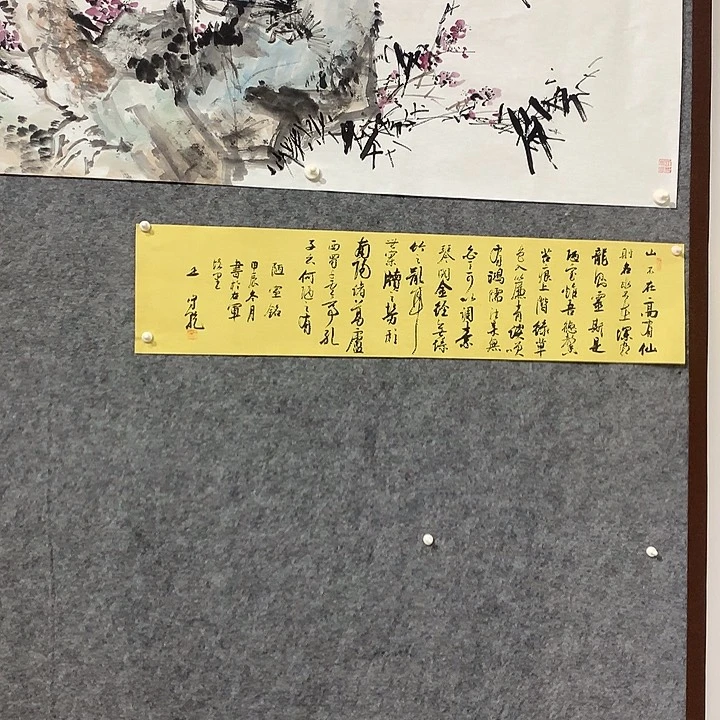 山不在高有仙
則名水不在深有
龍則靈斯是
陋室惟吾德馨
苔痕上階緑草
色入簾青談笑
有鴻儒往来無
白丁可以調素
琴閲金經無絲
竹之亂耳
無案牘之勞形
南陽諸葛廬
西蜀子雲亭孔
子云何陋之有
陋室銘
甲辰冬月
書於右軍
故里
王守